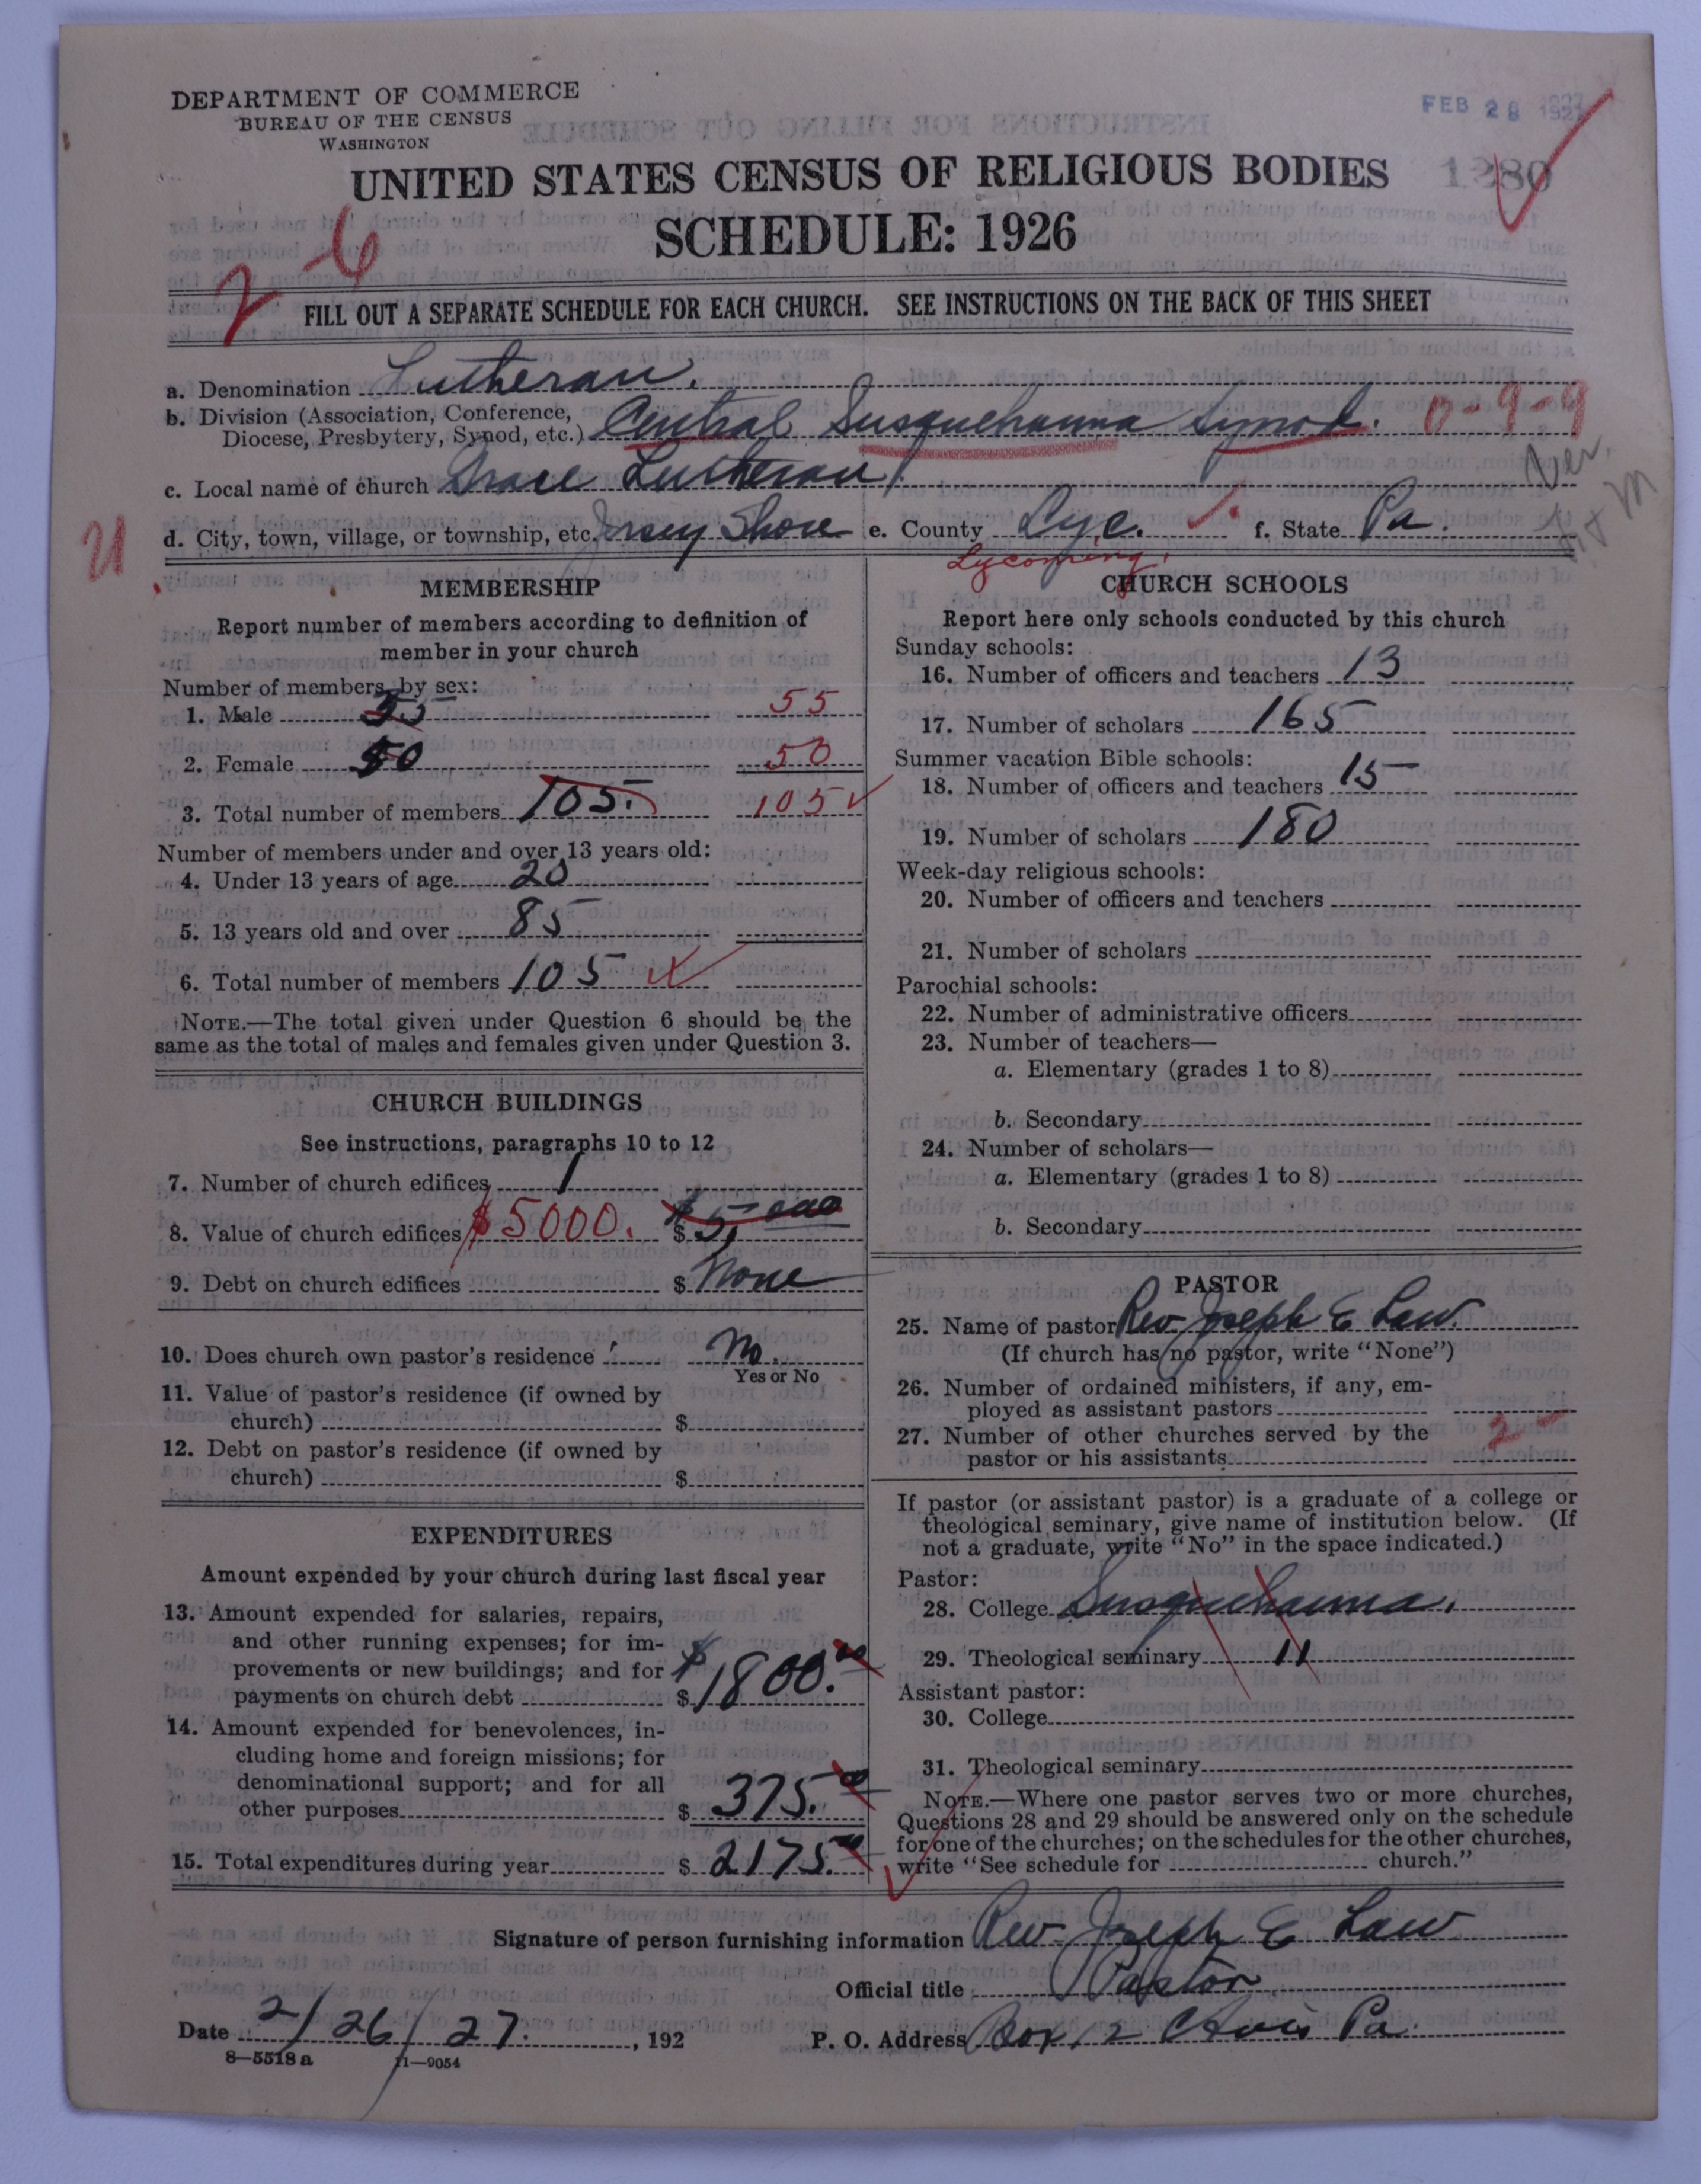 DEPARTMENT OF COMMERCE
BUREAU OF THE CENSUS
WASHINGTON
FEB 28 1927
UNITED STATES CENSUS OF RELIGIOUS BODIES
SCHEDULE: 1926
2 6
FILL OUT A SEPARATE SCHEDULE FOR EACH CHURCH. SEE INSTRUCTIONS ON THE BACK OF THIS SHEET
a. Denomination Lutheran.
b. Division (Association, Conference, Diocese, Presbytery, Synod, etc.) Central Susquehanna Synod. 0-9-9
c. Local name of church Grace Lutheran
d. City, town, village, or township, etc. Jersey Shore e. County Lyc. f. State Pa.
Lycoming
MEMBERSHIP
Report number of members according to definition of
member in your church
Number of members by sex:
1. Male 55 55
2. Female 50 50
3. Total number of members 105. 105
Number of members under and over 13 years old:
4. Under 13 years of age 20
5. 13 years old and over 85
6. Total number of members 105
NOTE.—The total given under Question 6 should be the
same as the total of males and females given under Question 3.
CHURCH BUILDINGS
See instructions, paragraphs 10 to 12
7. Number of church edifices 1
8. Value of church edifices $5000. $ 5,000
9. Debt on church edifices $ None
10. Does church own pastor's residence? No.
Yes or No
11. Value of pastor's residence (if owned by
church) $
12. Debt on pastor's residence (if owned by
church) $
EXPENDITURES
Amount expended by your church during last fiscal year
13. Amount expended for salaries, repairs,
and other running expenses; for im-
provements or new buildings; and for
payments on church debt $ 1800.00
14. Amount expended for benevolences, in-
cluding home and foreign missions; for
denominational support; and for all
other purposes $ 375.00
15. Total expenditures during year $ 2175.00
CHURCH SCHOOLS
Report here only schools conducted by this church
Sunday schools:
16. Number of officers and teachers 13
17. Number of scholars 165
Summer vacation Bible schools:
18. Number of officers and teachers 15
19. Number of scholars 180
Week-day religious schools:
20. Number of officers and teachers
21. Number of scholars
Parochial schools:
22. Number of administrative officers
23. Number of teachers—
a. Elementary (grades 1 to 8)
b. Secondary
24. Number of scholars—
a. Elementary (grades 1 to 8)
b. Secondary
PASTOR
25. Name of pastor Rev Joseph E Law.
(If church has no pastor, write "None")
26. Number of ordained ministers, if any, em-
ployed as assistant pastors
27. Number of other churches served by the
pastor or his assistants 2
If pastor (or assistant pastor) is a graduate of a college or
theological seminary, give name of institution below. (If
not a graduate, write "No" in the space indicated.)
Pastor:
28. College Susquehanna.
29. Theological seminary "
Assistant pastor:
30. College
31. Theological seminary
NOTE.—Where one pastor serves two or more churches,
Questions 28 and 29 should be answered only on the schedule
for one of the churches; on the schedules for the other churches,
write "See schedule for church."
Signature of person furnishing information Rev Joseph E Law
Official title Pastor
Date 2/26/27. , 192 P. O. Address Box 12 Avis Pa.
8—5518 a 11—9054